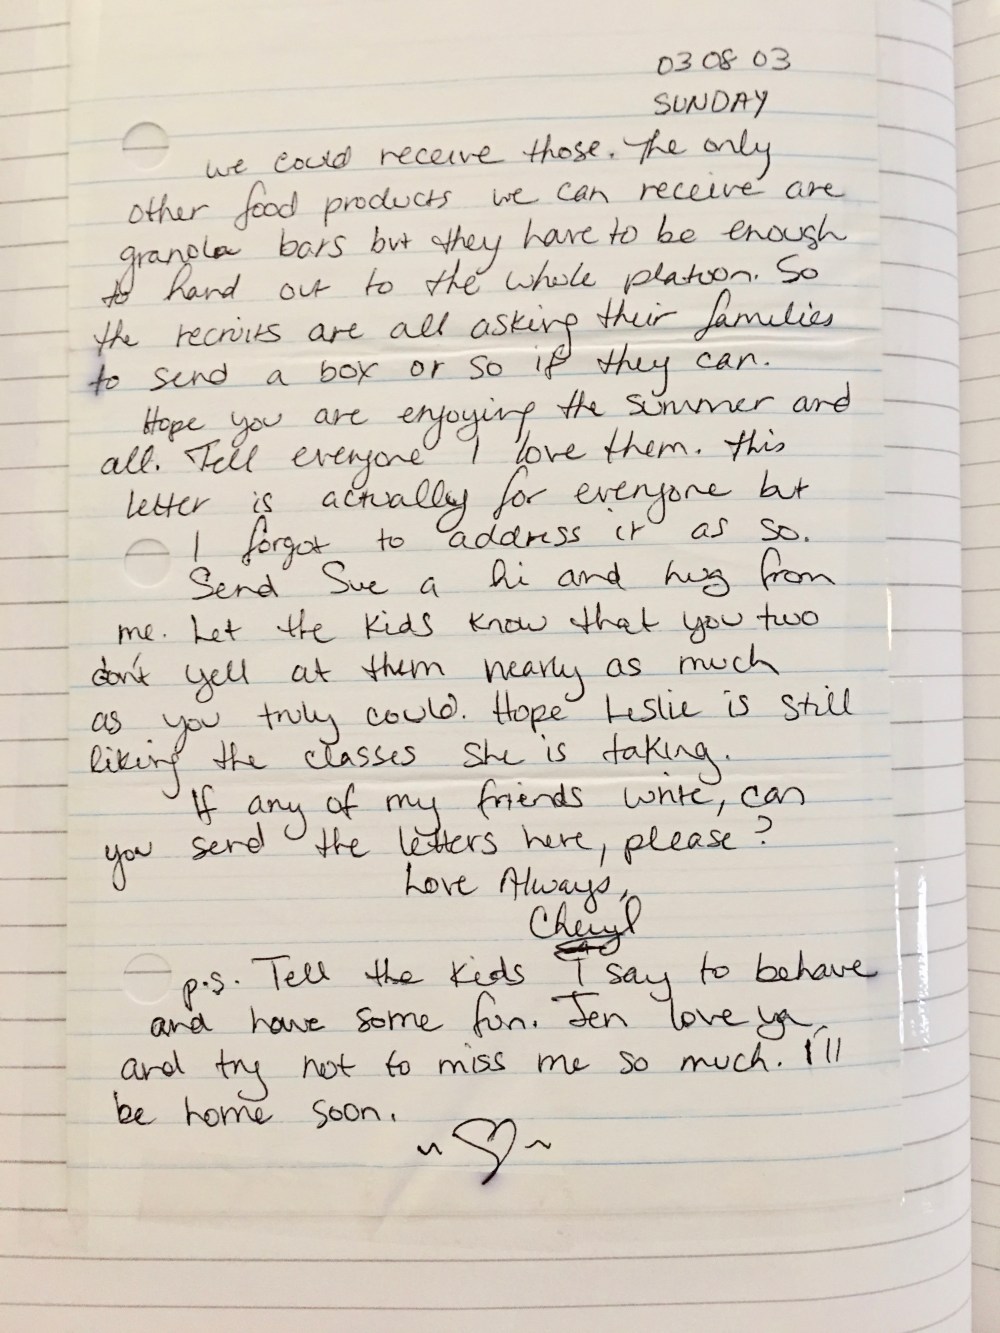 03 08 03
SUNDAY
we could receive those. The only
other food products we can receive are
granola bars but they have to be enough
to hand out to the whole platoon. So
the recruits are all asking their families
to send a box or so if they can.
Hope you are enjoying the summer and
all. Tell everyone I love them. This
letter is actually for everyone but
I forgot to address it as so.
Send Sue a hi and hug from
me. Let the kids know that you two
don't yell at them nearly as much
as you truly could. Hope Leslie is still
liking the classes she is taking.
If any of my friends write, can
you send the letters here, please?
Love Always,
Cheryl
p.s. Tell the kids I say to behave
and have some fun. Jen love ya
and try not to miss me so much. I'll
be home soon.
~♡~